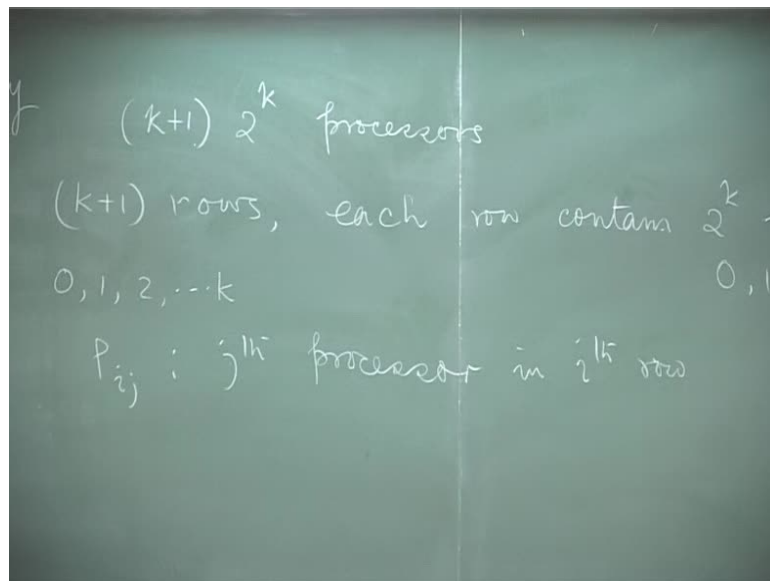 y (k+1) 2^k processors
(k+1) rows, each row contains 2^k
0, 1, 2, ... k 0, 1
P_ij : j^th processor in i^th row